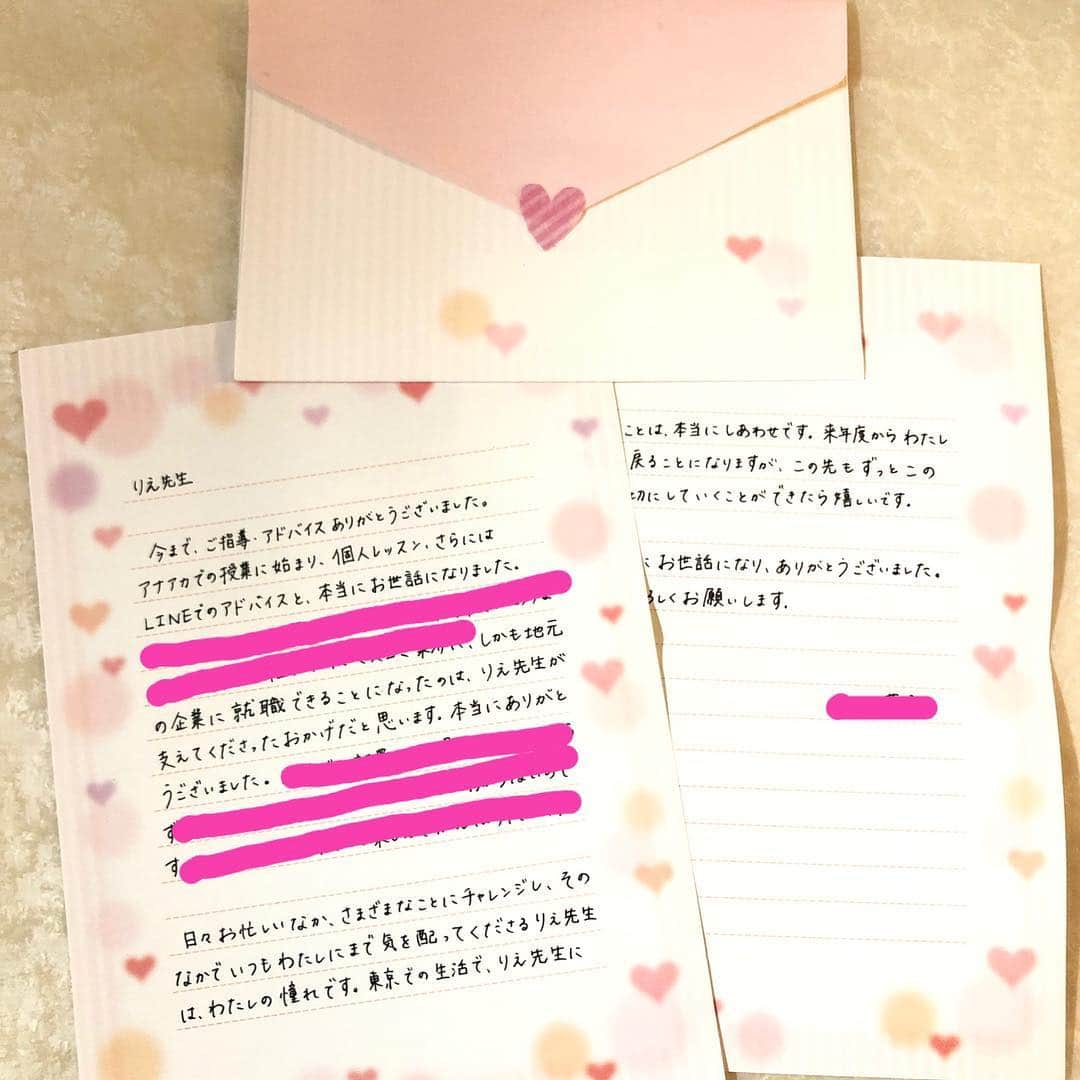 りえ先生
今まで、ご指導・アドバイスありがとうございました。
アナアカでの授業に始まり、個人レッスン、さらには
LINEでのアドバイスと、本当にお世話になりました。
、しかも地元
の企業に就職できることになったのは、りえ先生が
支えてくださったおかげだと思います。本当にありがと
うございました。
ず
す
日々お忙しいなか、さまざまなことにチャレンジし、その
なかでいつもわたしにまで気を配ってくださるりえ先生
は、わたしの憧れです。東京での生活で、りえ先生に
ことは、本当にしあわせです。来年度からわたし
戻ることになりますが、この先もずっとこの
切にしていくことができたら嬉しいです。
にお世話になり、ありがとうございました。
ろしくお願いします。